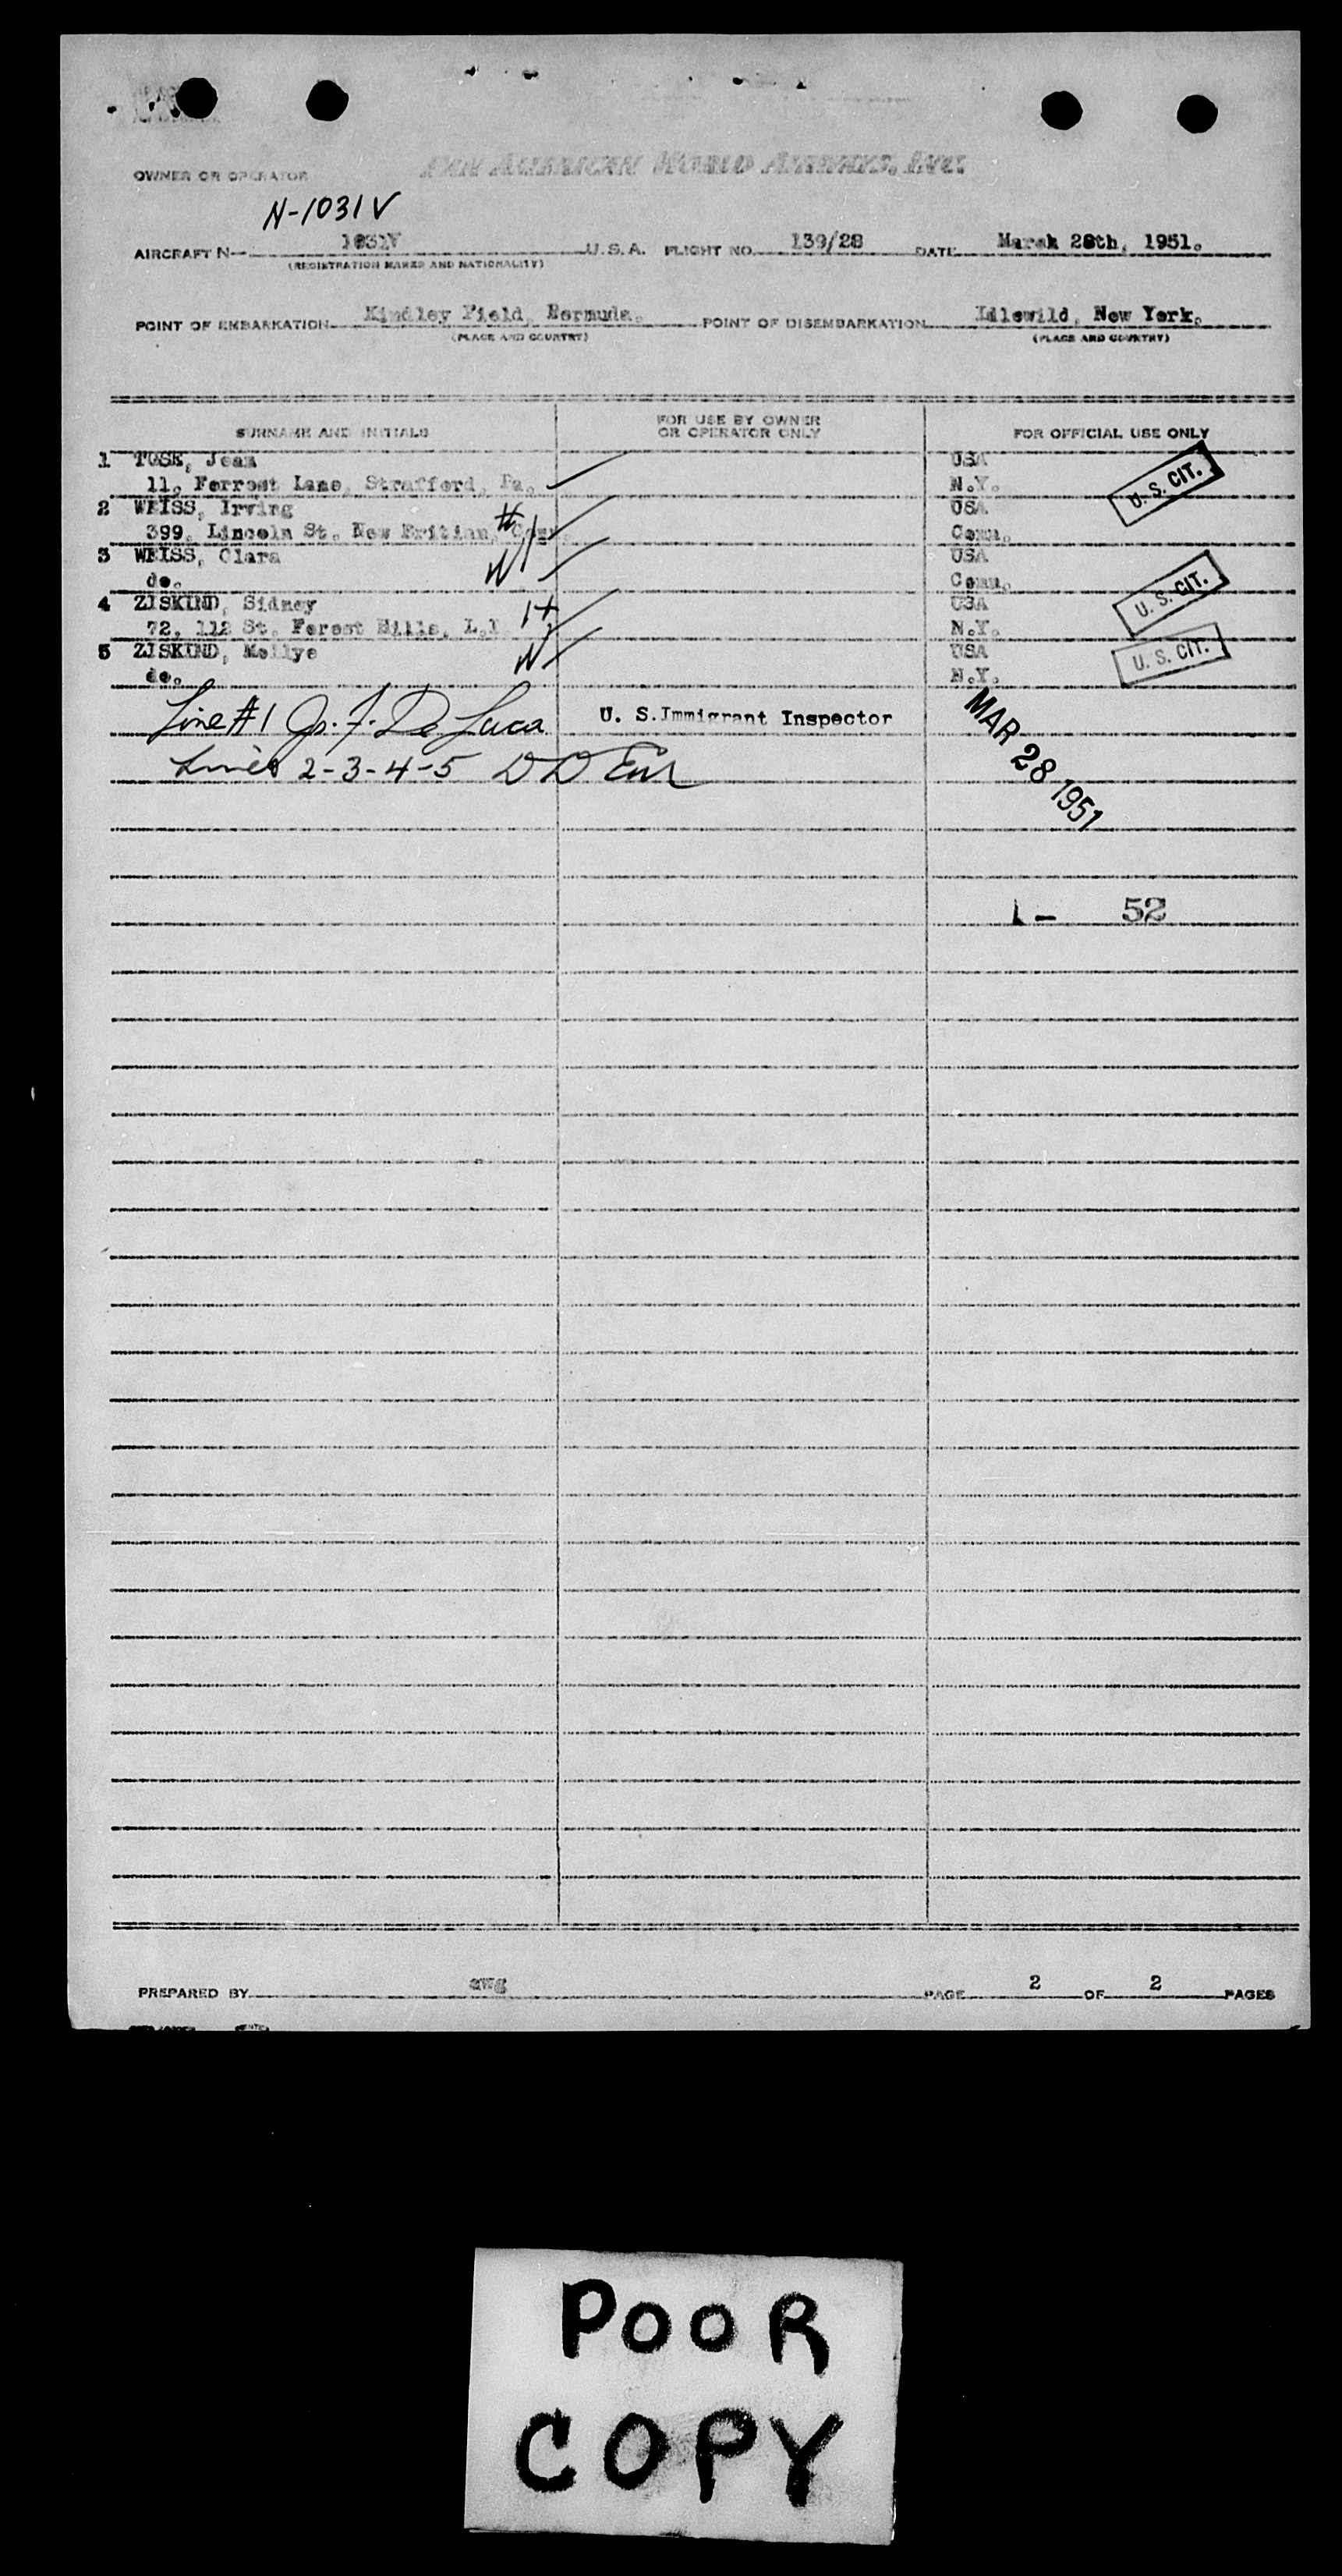 PAN AMERICAN WORLD AIRWAYS, INC.
OWNER OR OPERATOR
N-1031V
AIRCRAFT N- 1031V U.S.A. FLIGHT NO. 139/28 DATE March 28th, 1951.
(REGISTRATION MARKS AND NATIONALITY)
POINT OF EMBARKATION Kindley Field, Bermuda. POINT OF DISEMBARKATION Idlewild, New York.
(PLACE AND COUNTRY) (PLACE AND COUNTRY)
SURNAME AND INITIALS FOR USE BY OWNER OR OPERATOR ONLY FOR OFFICIAL USE ONLY
1 TOSE, Jean USA
11, Forrest Lane, Strafford, Pa. N.Y. U. S. CIT.
2 WEISS, Irving USA
399, Lincoln St. New Britian, Conn. Conn.
3 WEISS, Clara USA
do. Conn. U. S. CIT.
4 ZISKIND, Sidney USA
72, 112 St. Forest Hills, L.I N.Y.
5 ZISKIND, Mollye USA U. S. CIT.
do. N.Y.
Line #1 Jr. F. De Luca U. S. Immigrant Inspector MAR 28 1951
Lines 2-3-4-5
1 - 52
PREPARED BY awg PAGE 2 OF 2 PAGES
POOR
COPY